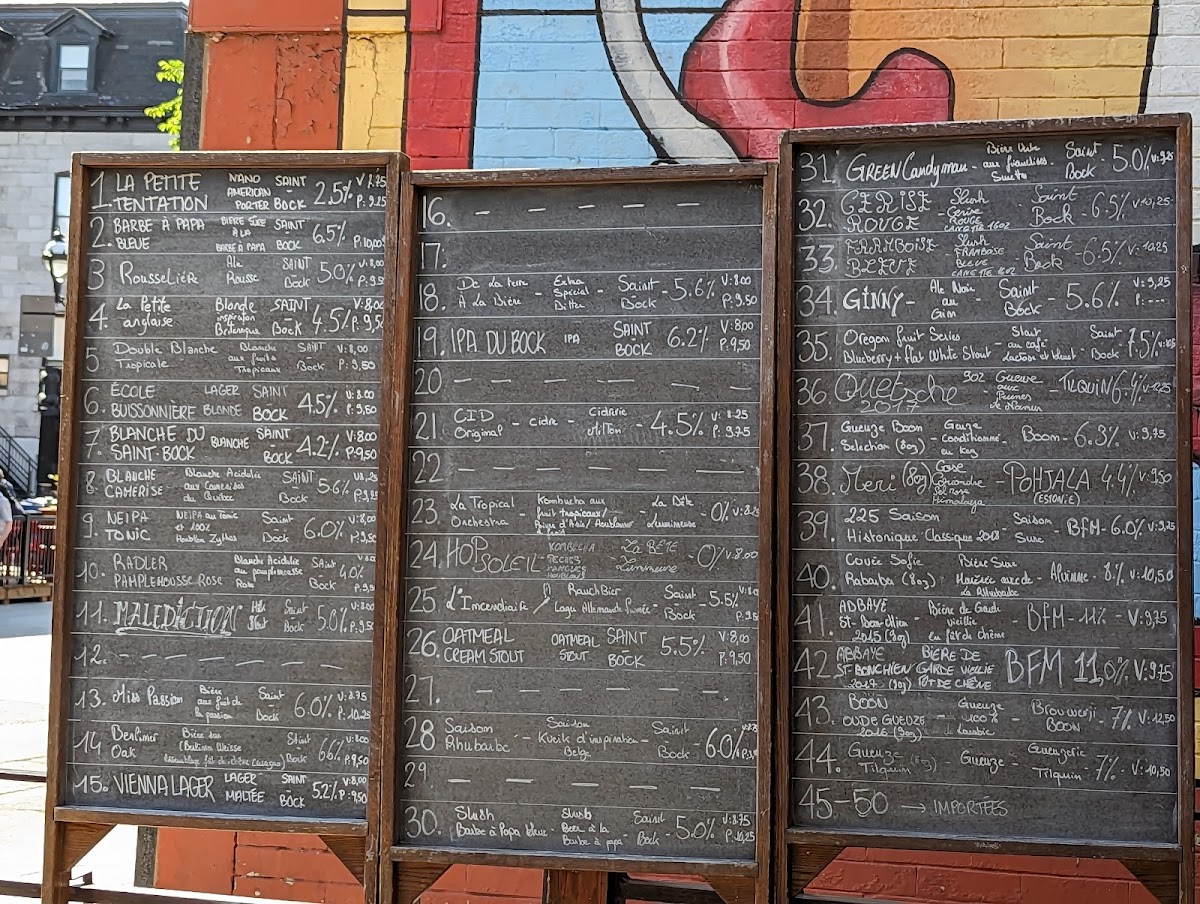 1. LA PETITE TENTATION NANO AMERICAN PORTER SAINT BOCK 2.5% V: 7.75 P: 9.25
2. BARBE À PAPA BLEUE BIÈRE SURE À LA BARBE À PAPA SAINT BOCK 6.5% P: 10,00
3 ROUSSELIÈRE Ale Rousse SAINT BOCK 5.0% V: 8,00 P: 9.50
4. La Petite anglaise Blonde inspiration Britannique SAINT BOCK 4.5% V: 8,00 P: 9,50
5 Double Blanche Tropicale Blanche aux fruits Tropicaux SAINT BOCK V: 8,00 P: 9,50
6. ÉCOLE BUISSONNIÈRE LAGER BLONDE SAINT BOCK 4.5% V: 8.00 P: 9,50
7. BLANCHE DU SAINT-BOCK BLANCHE SAINT BOCK 4.2% V: 8,00 P: 9,50
8. BLANCHE CAMERISE Blanche Acidulée aux camerises du Québec SAINT BOCK 5.6%
9. NEIPA TONIC NEIPA au Tonic et 100% Houblon Zythos Saint Bock 6.0% V: 8,00 P: 9,50
10. RADLER PAMPLEMOUSSE ROSE Blanche Acidulée au pamplemousse Rose Saint Bock 4.0%
11. MALEDICTION Stout Saint Bock 5.0% V: 8,00 P: 9.50
12. – – – – – –
13. Miss Passion Bière aux fruit de la passion Saint Bock 6.0% V: 8.75 P: 10.25
14 Berliner Oak Bière sur (Berliner Weisse Assemblage fût de chêne) Saint Bock 6.6% V: 8,00 P: 9,50
15. VIENNA LAGER LAGER MALTÉE SAINT BOCK 5.2% V: 8,00 P: 9,50
16. – – – – –
17.
18. De La terre À La Bière – Extra Spécial Bitter – Saint Bock – 5.6% V: 8.00 P: 9.50
19. IPA DU BOCK IPA SAINT BOCK 6.2% V: 8,00 P: 9,50
20 – – – – – –
21. CID Original – Cidre – Cidrerie Milton – 4.5% V: 8.25 P: 9.75
22 – – – – – –
23. La Tropical Orchestra – Kombucha aux fruit tropicaux / – La Bête Lumineuse – 0%
24. HOP SOLEIL KOMBUCHA PÊCHES HOUBLONS La BÊTE Lumineuse – 0% V: 8.00
25 L'Incendiaire RauchBier Lager Allemande fumée – Saint Bock – 5.5%
26. OATMEAL CREAM STOUT OATMEAL STOUT SAINT BOCK 5.5% V: 8,00 P: 9,50
27. – – – – –
28 Saison Rhubarbe – Saison Kveik d'inspiration Belge – Saint Bock – 6.0%
29 – – – – –
30. Slush Barbe à Papa bleue – Slush Beer à la Barbe à papa – Saint Bock – 5.0% V: 8.75 P: 10.25
31. GREEN Candyman – Bière Sure aux friandises Surette – Saint Bock – 5.0%
32. CERISE ROUGE Slush Cerise ROUGE CANETTE 16oz – Saint Bock – 6.5% V: 10,25
33. FRAMBOISE BLEUE Slush FRAMBOISE BLEUE CANETTE 16oz – Saint Bock – 6.5% V: 10,25
34. GINNY – Ale Noir au Gin – Saint Bock – 5.6% V: 9,25 P: ----
35. Oregon fruit Series Blueberry + flat White Stout – Stout au café Lactose et bleuet – Saint Bock – 7.5%
36. Quetsche 2017 Gueuze aux Prunes de Namur TILQUIN 6.4%
37. Gueuze Boon Selection (8oz) – Gueuze Conditionné en Keg – Boom – 6.3% V: 9,75
38. Meri (8oz) Gose Coriandre Sel rose Himalaya – POHJALA (ESTONIE) 4.4% V: 9,50
39. 225 Saison Historique Classique 2018 – Saison Sure – BFM – 6.0% V: 9,25
40. Cuvée Sofie Rababa (8oz) – Bière Sure Marinée avec de La Rhubarbe – Alvinne – 8% V: 10,50
41. ABBAYE St-Bon-Chien 2015 (8oz) – Bière de Garde vieillie en fût de chêne – BFM – 11% – V: 9,75
42. ABBAYE ST BONCHIEN (8oz) BIÈRE DE GARDE VIEILLIE FÛT DE CHÊNE BFM 11,0% V: 9.75
43. BOON OUDE GUEUZE 2016 (8oz) – Gueuze 100% Lambic – Brouwerij BOON – 7% V: 12,50
44. Gueuze Tilquin (8oz) – Gueuze – Gueuzerie Tilquin 7% V: 10,50
45-50 → IMPORTÉES